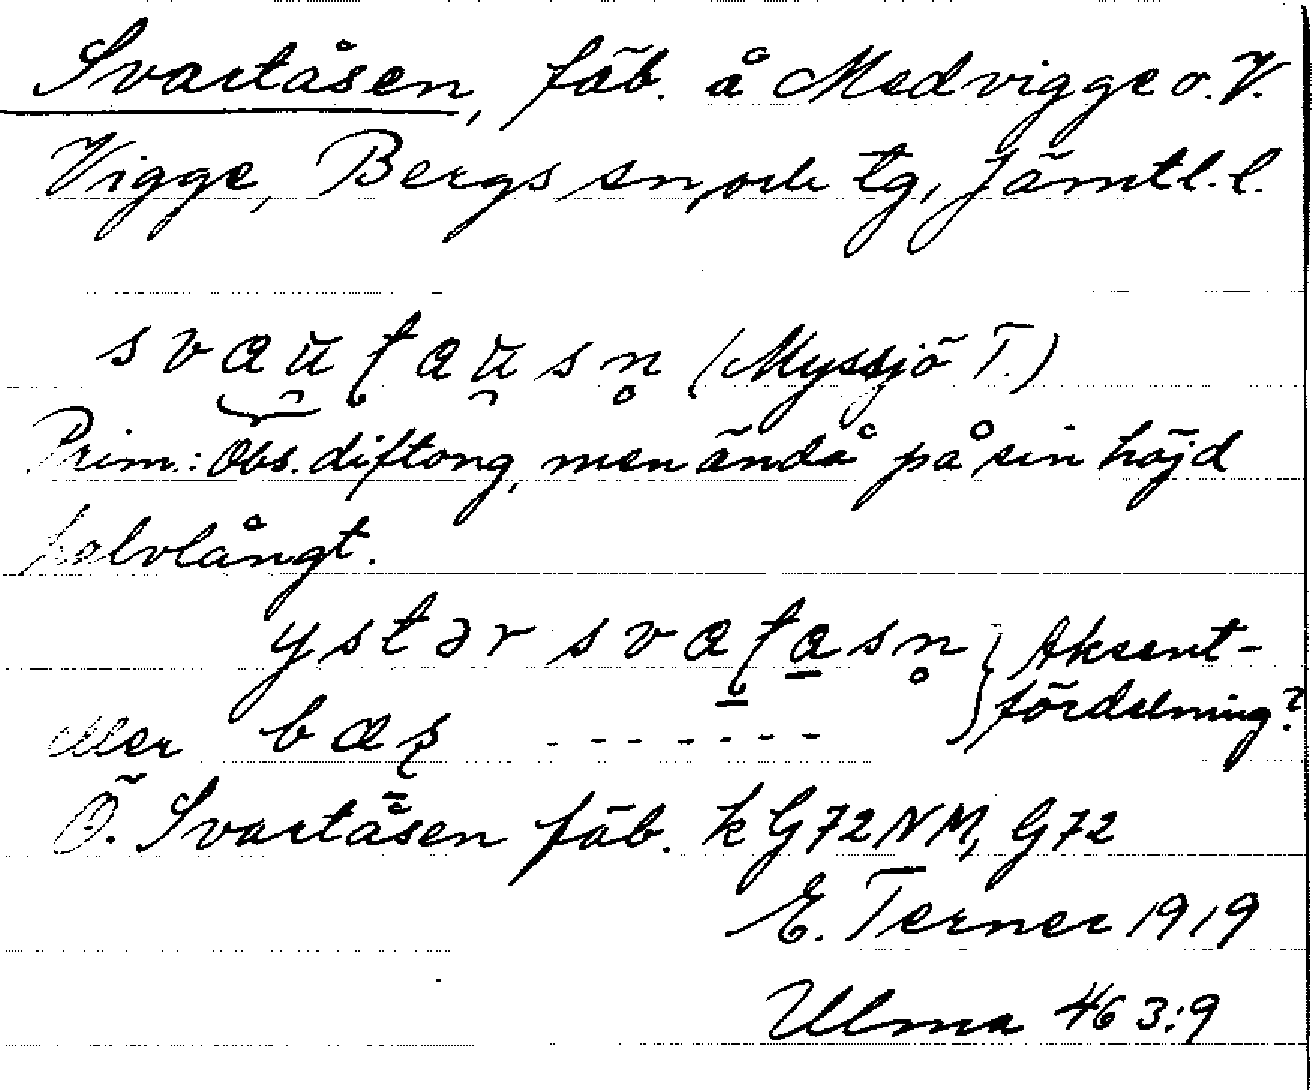 Svartåsen, fäb. å Medvigge o. V.
Vigge, Bergs sn och tg, Jämtl. l.
(Myssjö T.)
Prim.: Obs. diftong, men ändå på sin höjd
halvlångt.
ystər svaʈasn̥ } Aksent-
eller bæʂ - - - - - - - fördelning?
Ö. Svartåsen fäb. k G72NM, G72
E. Terner 1919
Ulma 463:9